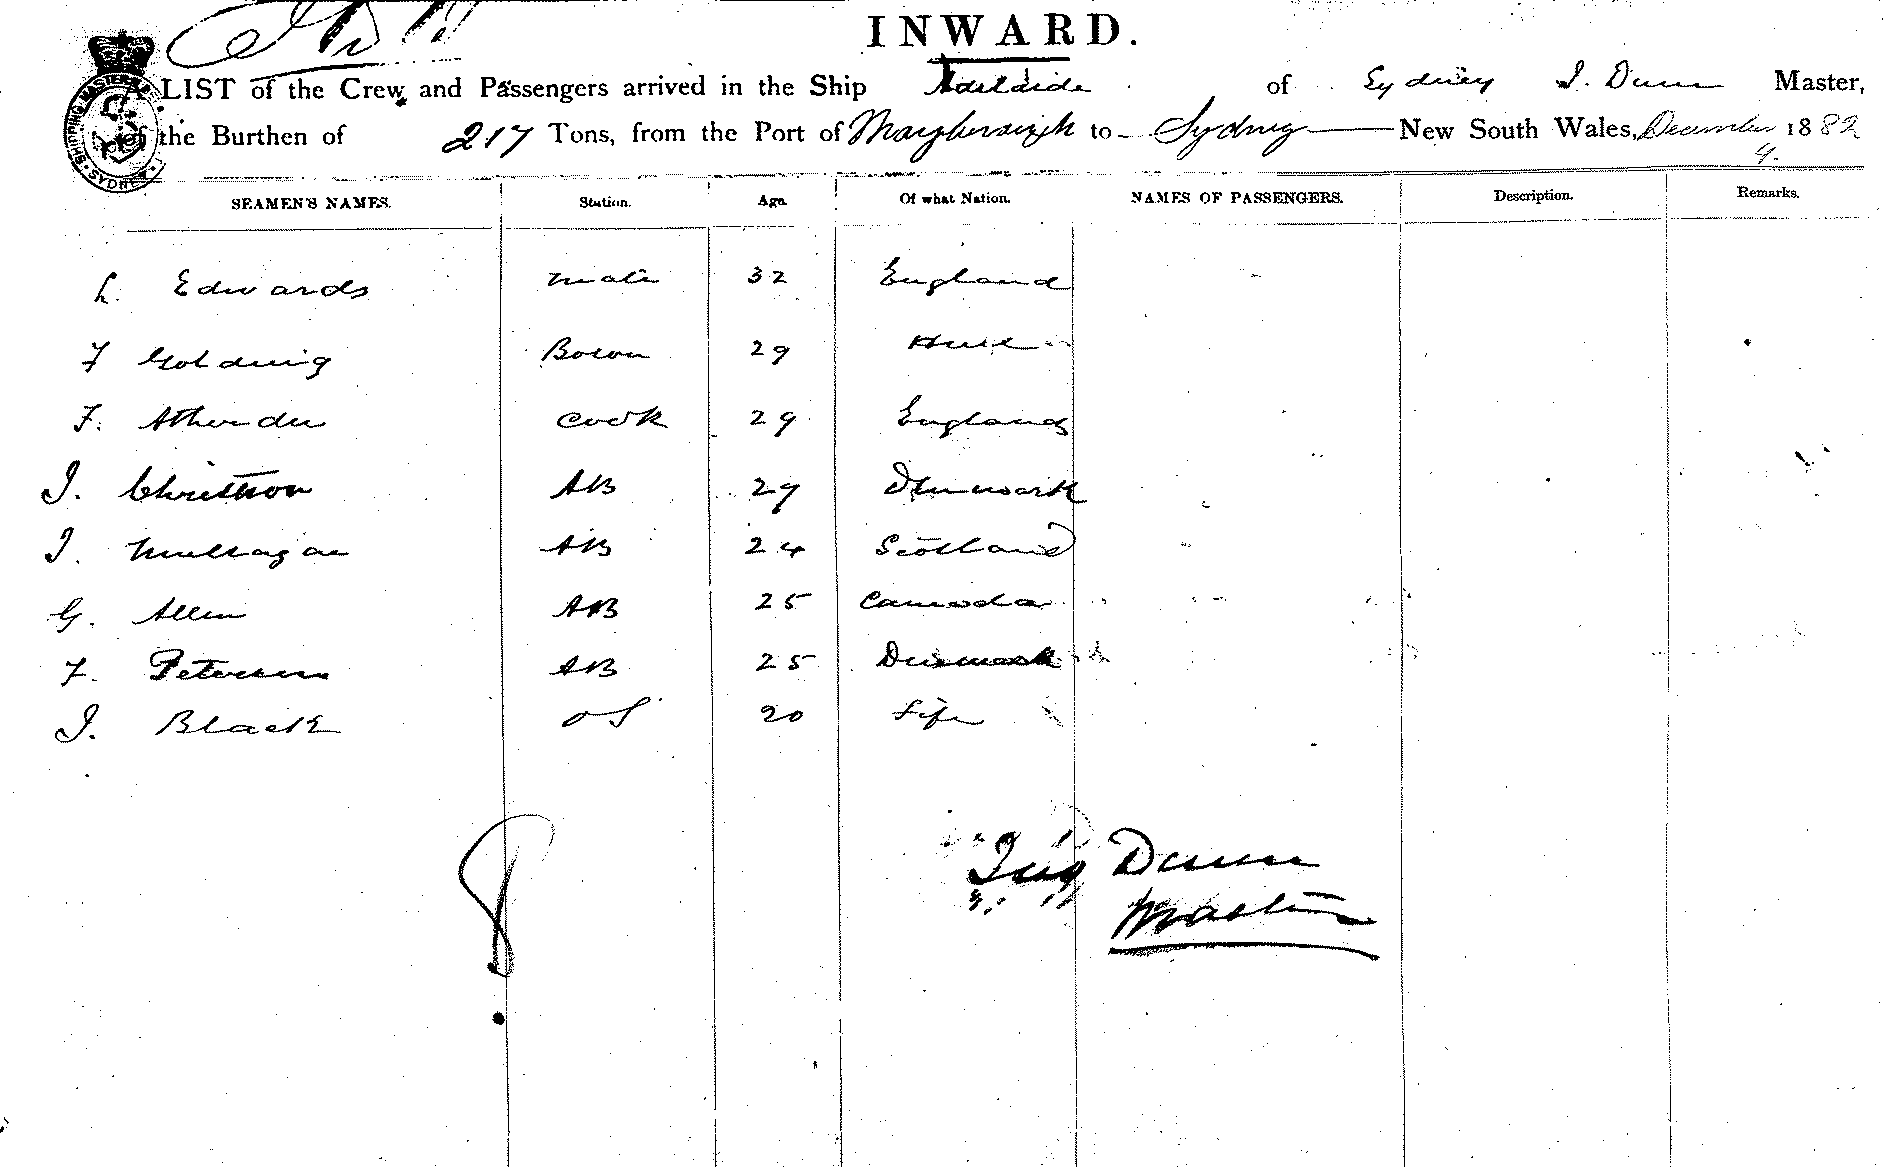 INWARD.
A LIST of the Crew and Passengers arrived in the Ship Adelaide of Sydney J. Dunn Master,
of the Burthen of 217 Tons, from the Port of Maryborough to Sydney New South Wales, December 1882
9.
SHIPPING MASTER'S SYDNEY
SEAMEN'S NAMES. Station. Age. Of what Nation. NAMES OF PASSENGERS. Description. Remarks.
L. Edwards Mate 32 England
F Golding Bosun 29 Hull
F. 29 Cook England
J. Christson AB 29 Denmark
J. AB 24 Scotland
G. Allen AB 25 Canada
F. Petersen AB 25 Denmark
J. Black OS 20 Fife
Dunn
Master